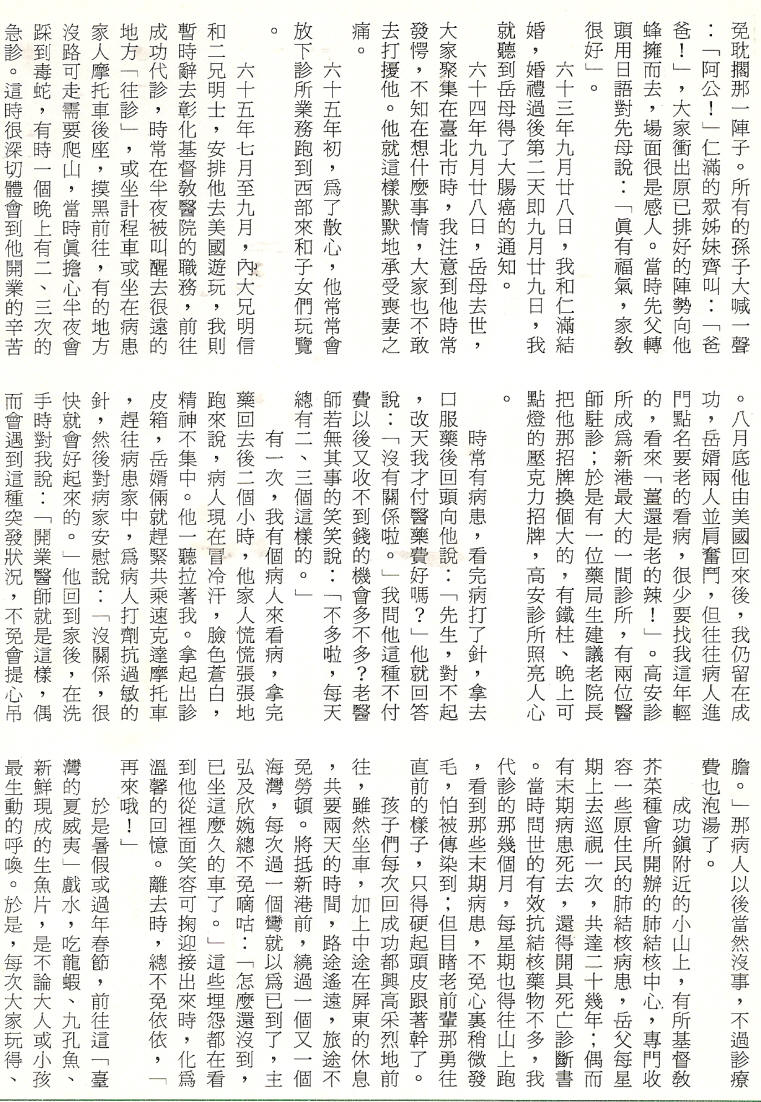 免耽擱那一陣子。所有的孫子大喊一聲
：「阿公！」仁滿的眾姊妹齊叫：「爸
爸！」，大家衝出原已排好的陣勢向他
蜂擁而去，場面很是感人。當時先父轉
頭用日語對先母說：「眞有福氣，家教
很好」。
六十三年九月廿八日，我和仁滿結
婚，婚禮過後第二天即九月廿九日，我
就聽到岳母得了大腸癌的通知。
六十四年九月廿八日，岳母去世，
大家聚集在臺北市時，我注意到他時常
發愕，不知在想什麼事情，大家也不敢
去打擾他。他就這樣默默地承受喪妻之
痛。
六十五年初，爲了散心，他常常會
放下診所業務跑到西部來和子女們玩覽
。
六十五年七月至九月，內大兄明信
和二兄明士，安排他去美國遊玩，我則
暫時辭去彰化基督教醫院的職務，前往
成功代診，時常在半夜被叫醒去很遠的
地方「往診」，或坐計程車或坐在病患
家人摩托車後座，摸黑前往，有的地方
沒路可走需要爬山，當時眞擔心半夜會
踩到毒蛇，有時一個晚上有二、三次的
急診。這時很深切體會到他開業的辛苦
。八月底他由美國回來後，我仍留在成
功，岳婿兩人並肩奮鬥，但往往病人進
門點名要老的看病，很少要找我這年輕
的，看來「薑還是老的辣！」。高安診
所成爲新港最大的一間診所，有兩位醫
師駐診；於是有一位藥局生建議老院長
把他那招牌換個大的，有鐵柱、晚上可
點燈的壓克力招牌，高安診所照亮人心
。
時常有病患，看完病打了針，拿去
口服藥後回頭向他說：「先生，對不起
，改天我才付醫藥費好嗎？」他就回答
說：「沒有關係啦。」我問他這種不付
費以後又收不到錢的機會多不多？老醫
師若無其事的笑笑說：「不多啦，每天
總有二、三個這樣的。」
有一次，我有個病人來看病，拿完
藥回去後二個小時，他家人慌慌張張地
跑來說，病人現在冒冷汗，臉色蒼白，
精神不集中。他一聽拉著我。拿起出診
皮箱，岳婿倆就趕緊共乘速克達摩托車
，趕往病患家中，爲病人打劑抗過敏的
針，然後對病家安慰說：「沒關係，很
快就會好起來的。」他回到家後，在洗
手時對我說：「開業醫師就是這樣，偶
而會遇到這種突發狀況，不免會提心吊
膽。」那病人以後當然沒事，不過診療
費也泡湯了。
成功鎭附近的小山上，有所基督教
芥菜種會所開辦的肺結核中心，專門收
容一些原住民的肺結核病患，岳父每星
期上去巡視一次，共達二十幾年；偶而
有末期病患死去，還得開具死亡診斷書
。當時問世的有效抗結核藥物不多，我
代診的那幾個月，每星期也得往山上跑
，看到那些末期病患，不免心裏稍微發
毛，怕被傳染到；但目睹老前輩那勇往
直前的樣子，只得硬起頭皮跟著幹了。
孩子們每次回成功都興高采烈地前
往，雖然坐車，加上中途在屏東的休息
，共要兩天的時間，路途遙遠，旅途不
免勞頓。將抵新港前，繞過一個又一個
海灣，每次過一個彎就以爲已到了，主
弘及欣婉總不免嘀咕：「怎麼還沒到，
已坐這麼久的車了。」這些埋怨都在看
到他從裡面笑容可掬迎接出來時，化爲
溫馨的回憶。離去時，總不免依依，「
再來哦！」
於是暑假或過年春節，前往這「臺
灣的夏威夷」戲水，吃龍蝦、九孔魚、
新鮮現成的生魚片，是不論大人或小孩
最生動的呼喚。於是，每次大家玩得、